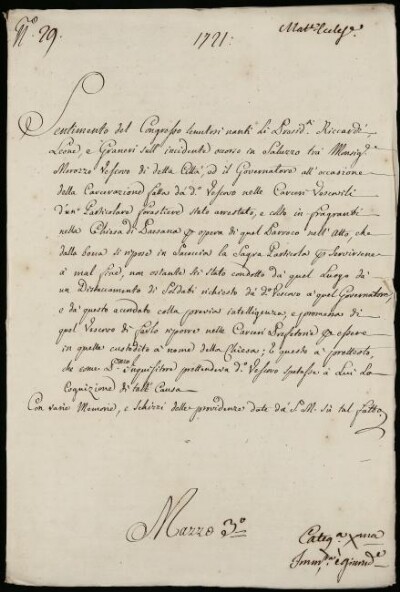 N.º 29.
1721:
Mat.e Eccles.e
Sentimento del Congresso tenutosi nanti li Presid.ti Riccardi,
Leone, e Graneri sull'incidente occorso in Saluzzo tra Monsig.r
Morozzo Vescovo di detta Città, ed il Governatore all'occasione
della Carcerazione fatta da d.o Vescovo nelle Carceri Vescovili
d'un Particolare forastiere stato arrestato, e colto in fragranti
nella Chiesa di per opera di quel Parroco nell'Atto, che
dalla bocca si ripose in Saccoccia la Sagra Particola per servirsene
a mal fine, non ostante sij stato condotto da quel luogo da
un Distaccamento di Soldati richiesto da d.o Vescovo a quel Governatore,
e da questo accordato colla previa intelligenza, e promessa di
quel Vescovo di farlo riporre nelle Carceri Prefetorie per essere
in quelle custodito a nome della Chiesa; e questo a pretesto,
che come Inquisitore pretendeva d.o Vescovo spettasse a Lui la
Cognizione di tall' Causa
Con varie Memorie, e Schizzi delle providenze date da S. M. sù tal fatto.
Mazzo 3.º
Categ.a xma
Imm.tà e giurisd.e